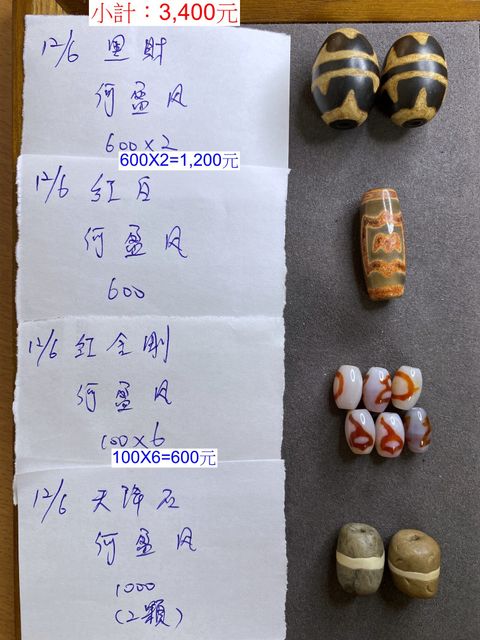 小計：3,400元
12/6 黑財
何盈汶
600×2
600X2=1,200元
12/6 紅白
何盈汶
600
12/6 紅金剛
何盈汶
100×6
100X6=600元
12/6 天降石
何盈汶
1000
(2顆)